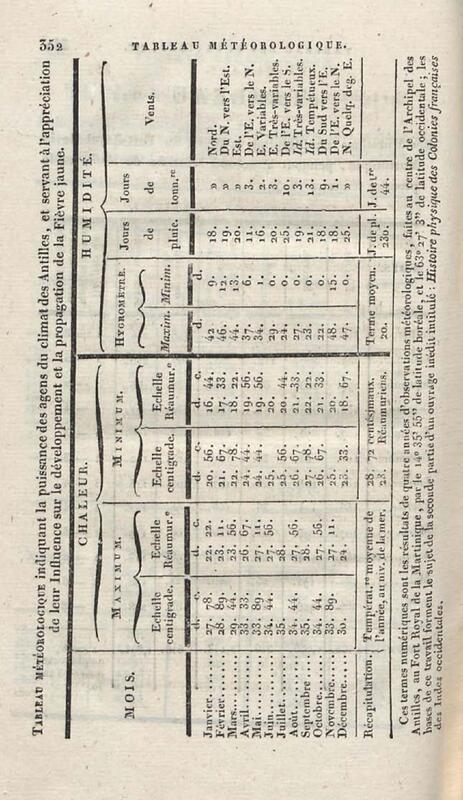 352
TABLEAU MÉTÉOROLOGIQUE.
TABLEAU MÉTÉOROLOGIQUE indiquant la puissance des agens du climat des Antilles, et servant à l'appréciation
de leur Influence sur le développement et la propagation de la Fièvre jaune.
CHALEUR. HUMIDITÉ.
MOIS. MAXIMUM. MINIMUM. HYGROMÈTRE. Jours de pluie. Jours de tonn.re Vents.
Echelle centigrade. Echelle Réaumur.n Echelle centigrade. Echelle Réaumur.n Maxim. Minim.
d. c. d. c. d. c. d. c. d. d.
Janvier....... 27. 78. 22. 22. 20. 56. 16. 44. 42. 9. 18. » Nord.
Février....... 28. 89. 23. 11. 21. 67. 17. 33. 46. 12. 19. » Du N. vers l'Est.
Mars........ 29. 44. 23. 56. 22. 78. 18. 22. 44. 13. 20. » Est.
Avril........ 33. 33. 26. 67. 24. 44. 19. 56. 37. 6. 11. 3. De l'E. vers le N.
Mai......... 33. 89. 27. 11. 24. 44. 19. 56. 34. 1. 16. 2. E. Variables.
Juin......... 34. 44. 27. 56. 25. 20. 29. 0. 20. 3. E. Très-variables.
Juillet........ 35. 28. 25. 56. 20. 44. 24. 0. 25. 10. De l'E. vers le S.
Août........ 34. 44. 27. 56. 26. 67. 21. 33. 27. 0. 19. 3. Id. Très-variables.
Septembre .... 35. 28. 27. 78. 22. 22. 23. 0. 21. 13. Id. Tempétueux.
Octobre...... 34. 44. 27. 56. 26. 67. 21. 33. 22. 0. 18. 9. Du Sud vers l'E.
Novembre .... 33. 89. 27. 11. 25. 20. 48. 15. 18. 1. De l'E. vers le N.
Décembre..... 30. 24. 23. 33. 18. 67. 47. 0. 25. » N. Quelq. deg. E.
Récapitulation. Températ.re moyenne de l'année, au niv. de la mer. 28. 72 centésimaux. 23. Réaumuriens. Terme moyen. 20. J. de pl. 230. J. de t.re 44.
Ces termes numériques sont les résultats de quatre années d'observations météorologiques, faites au centre de l'Archipel des
Antilles, au Fort Royal de la Martinique, par le 14° 35' 55" de latitude boréale, et le 63° 27' 3" de latitude occidentale; les
bases de ce travail forment le sujet de la seconde partie d'un ouvrage inédit intitulé : Histoire physique des Colonies françaises
des Indes occidentales.